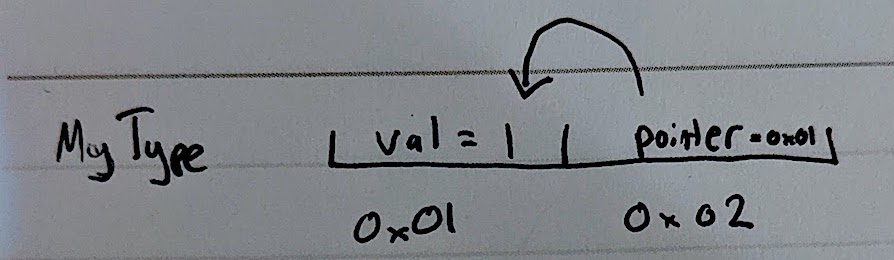 MyType | val = 1 | pointer = 0x01 |
0x01 0x02